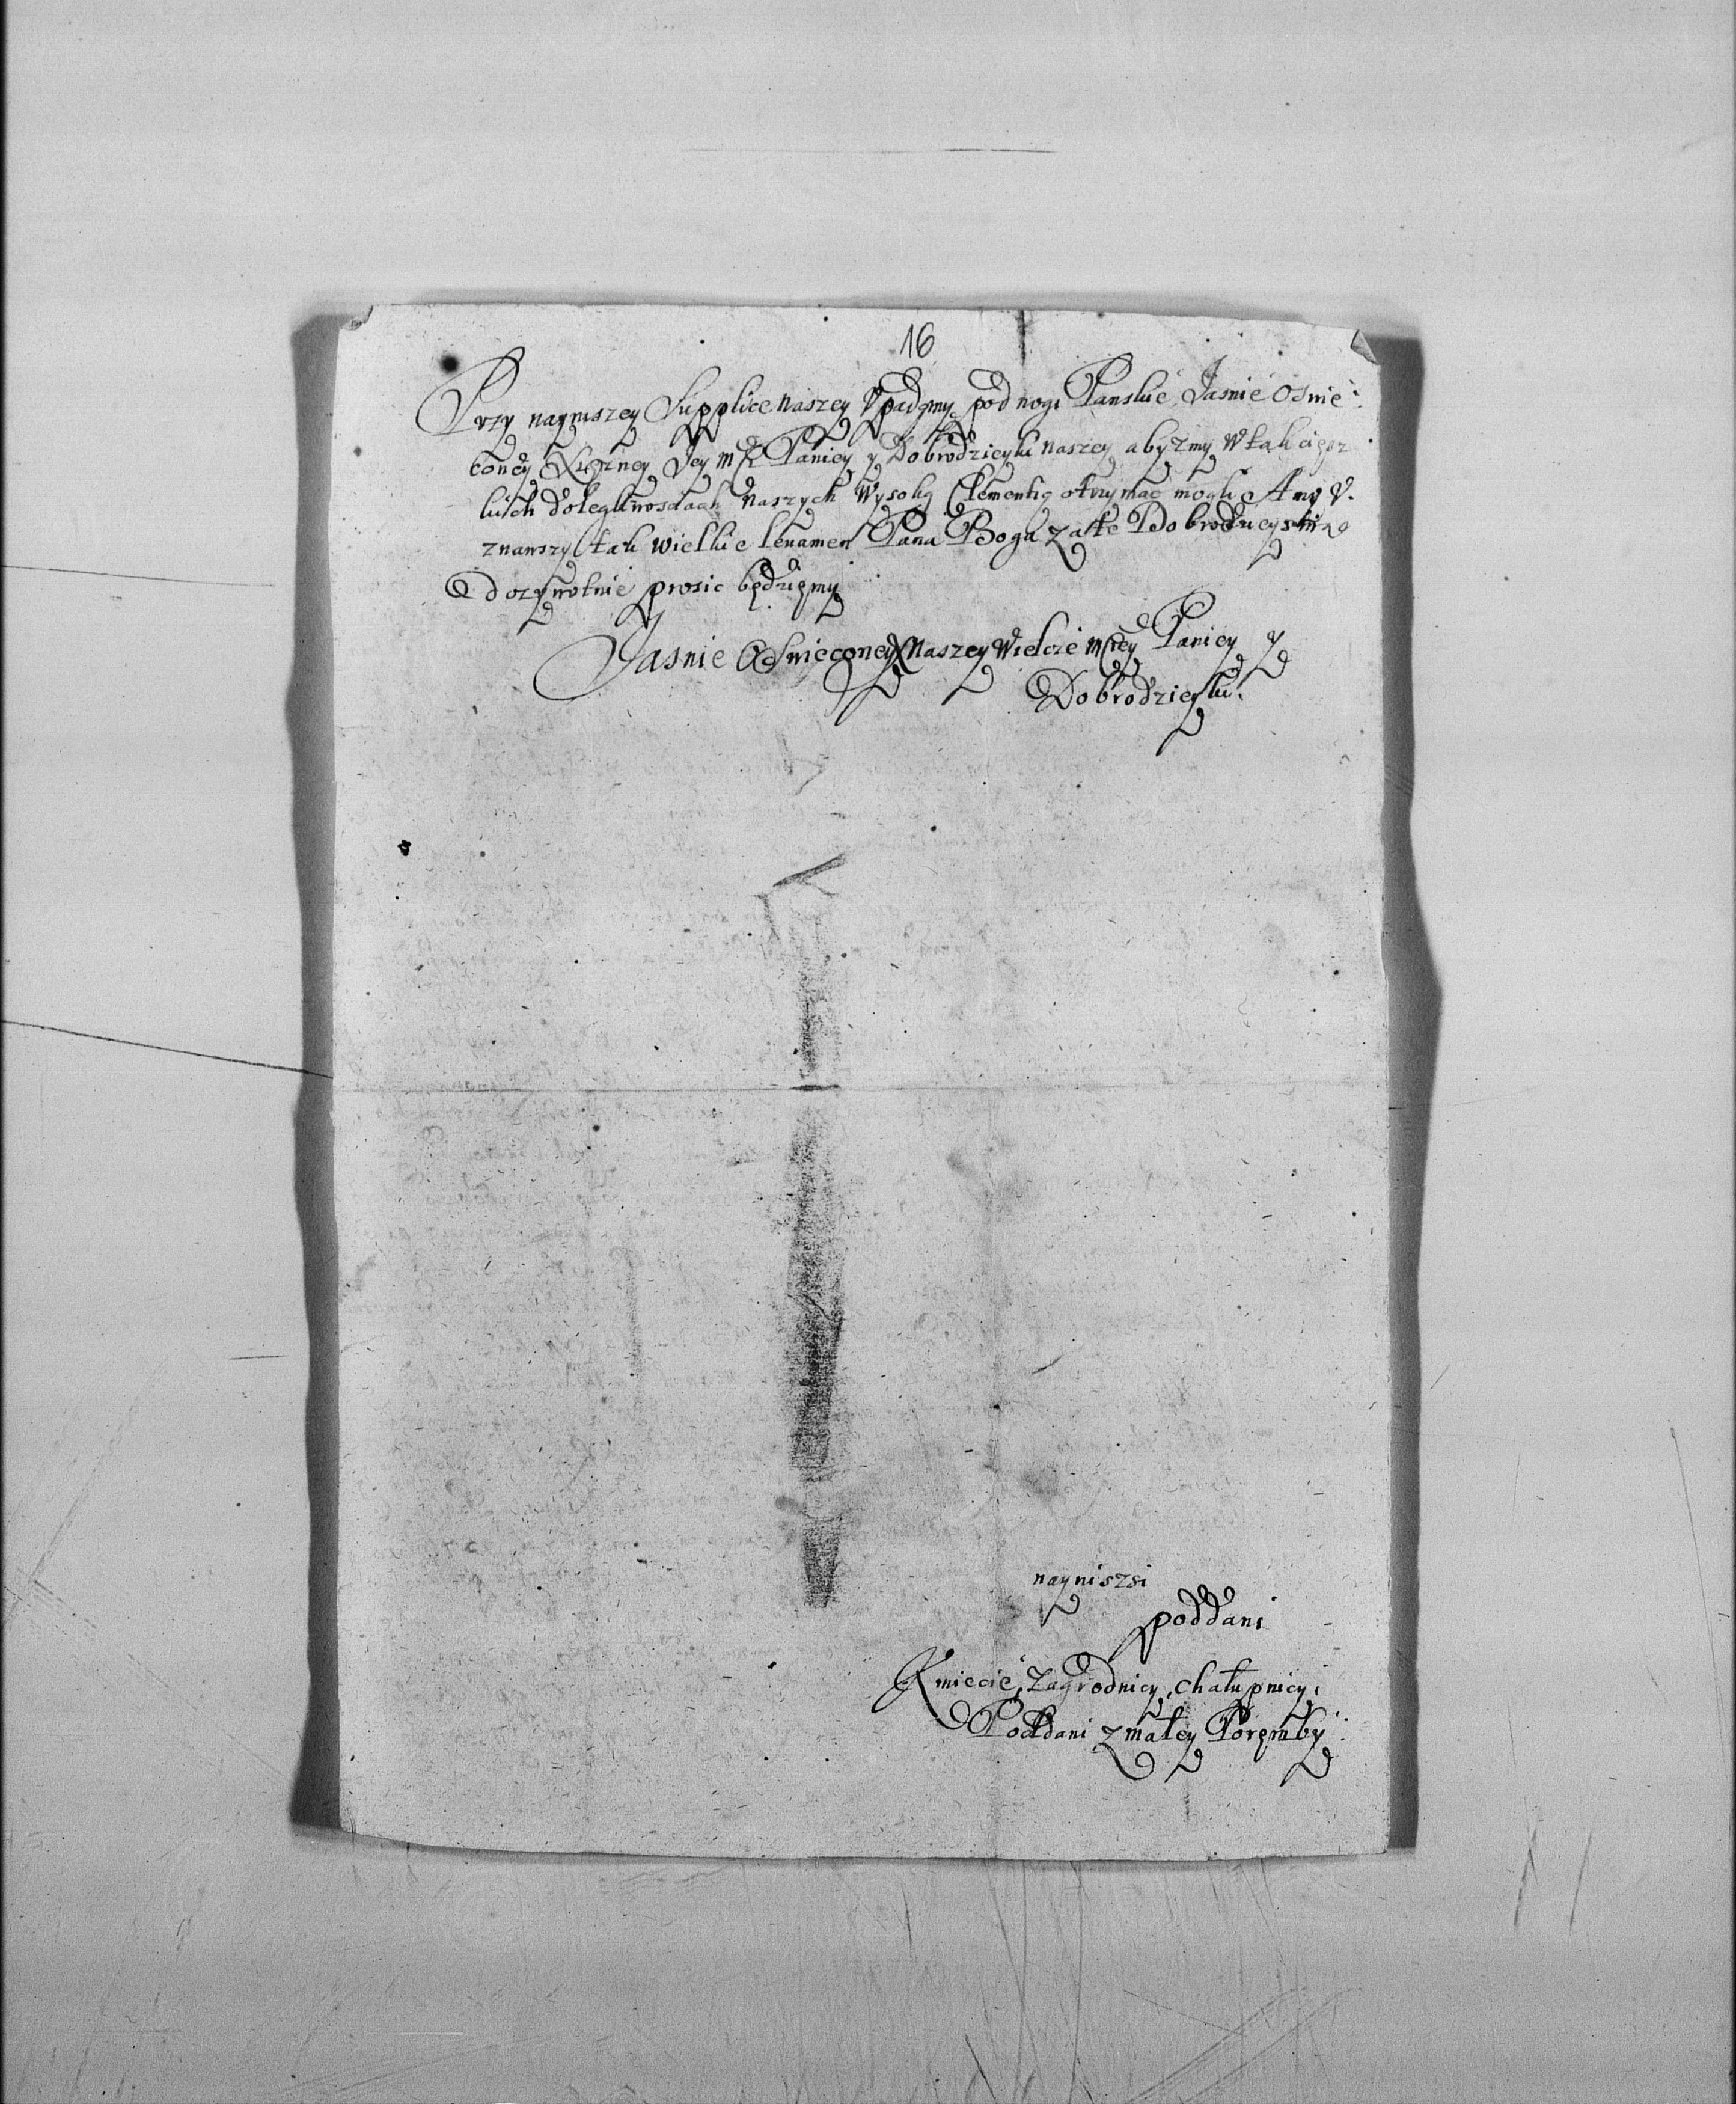 16
Przy nayniszey Supplice naszey Vpadęmy pod nogi Panskie Jasnie Oswie-
coney Xiężney Jey Mci Paniey y Dobrodzieyki naszey abyzmy w tak cięsz
kich dolegliwosciach naszych Wysoką Clementią otrzymac mogli A my V-
znawszy tak wielkie lenamen Pana Boga za te Dobrodzieystwa
dozywotnie prosic będziemy
Jasnie Oswięconey X Naszey Wielcie Mciey Paniey y
Dobrodzieyki.
nayniszsi
poddani
Kmiecie, Zagrodnicy, chałupnicy,
Poddani z małey Poręmby